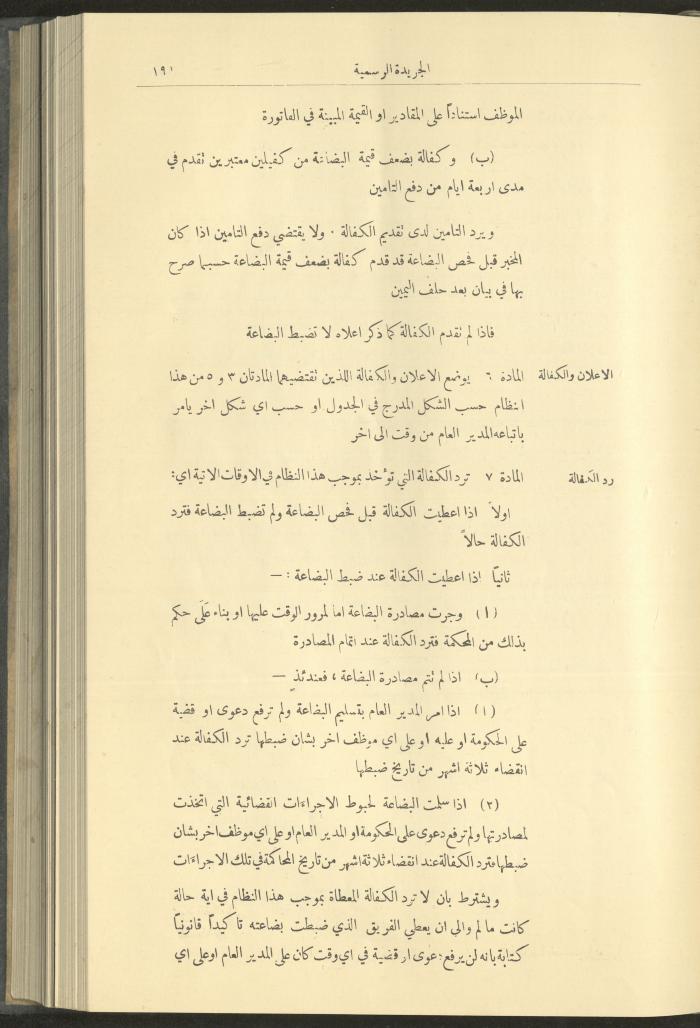 الجريدة الرسمية ١٩١
الموظف استناداً على المقادير او القيمة المبينة في الفاتورة
(ب) وكفالة بضعف قيمة البضاعة من كفيلين معتبرين تقدم في
مدى اربعة ايام من دفع التامين
ويرد التامين لدى تقديم الكفالة ٠ ولا يقتضي دفع التامين اذا كان
المخبر قبل فحص البضاعة قد قدم كفالة بضعف قيمة البضاعة حسبما صرح
بها في بيان بعد حلف اليمين
فاذا لم تقدم الكفالة كما ذكر اعلاه لا تضبط البضاعة
الاعلان والكفالة المادة ٦ يوضع الاعلان والكفالة اللذين تقتضيهما المادتان ٣ و ٥ من هذا
النظام حسب الشكل المدرج في الجدول او حسب اي شكل اخر يامر
باتباعه المدير العام من وقت الى اخر
رد الكفالة المادة ٧ ترد الكفالة التي تؤخذ بموجب هذا النظام في الاوقات الاتية اي:
اولاً اذا اعطيت الكفالة قبل فحص البضاعة ولم تضبط البضاعة فترد
الكفالة حالاً
ثانياً اذا اعطيت الكفالة عند ضبط البضاعة : —
(ا) وجرت مصادرة البضاعة اما لمرور الوقت عليها او بناء عَلَى حكم
بذلك من المحكمة فترد الكفالة عند اتمام المصادرة
(ب) اذا لم تتم مصادرة البضاعة ، فعندئذٍ —
(١) اذا امر المدير العام بتسليم البضاعة ولم ترفع دعوى او قضية
على الحكومة او عليه او على اي موظف اخر بشان ضبطها ترد الكفالة عند
انقضاء ثلاثة اشهر من تاريخ ضبطها
(٢) اذا سلمت البضاعة لحبوط الاجراءات القضائية التي اتخذت
لمصادرتها ولم ترفع دعوى على الحكومة او المدير العام او على اي موظف اخر بشان
ضبطها فترد الكفالة عند انقضاء ثلاثة اشهر من تاريخ المحاكمة في تلك الاجراءات
ويشترط بان لا ترد الكفالة المعطاة بموجب هذا النظام في اية حالة
كانت ما لم والى ان يعطي الفريق الذي ضبطت بضاعته تاكيداً قانونياً
كتابة بانه لن يرفع دعوى او قضية في اي وقت كان على المدير العام او على اي